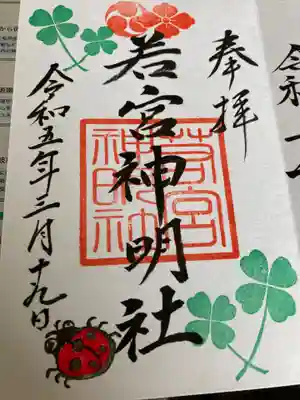 奉拝
若宮神明社
若宮
神明社
令和五年三月十九日